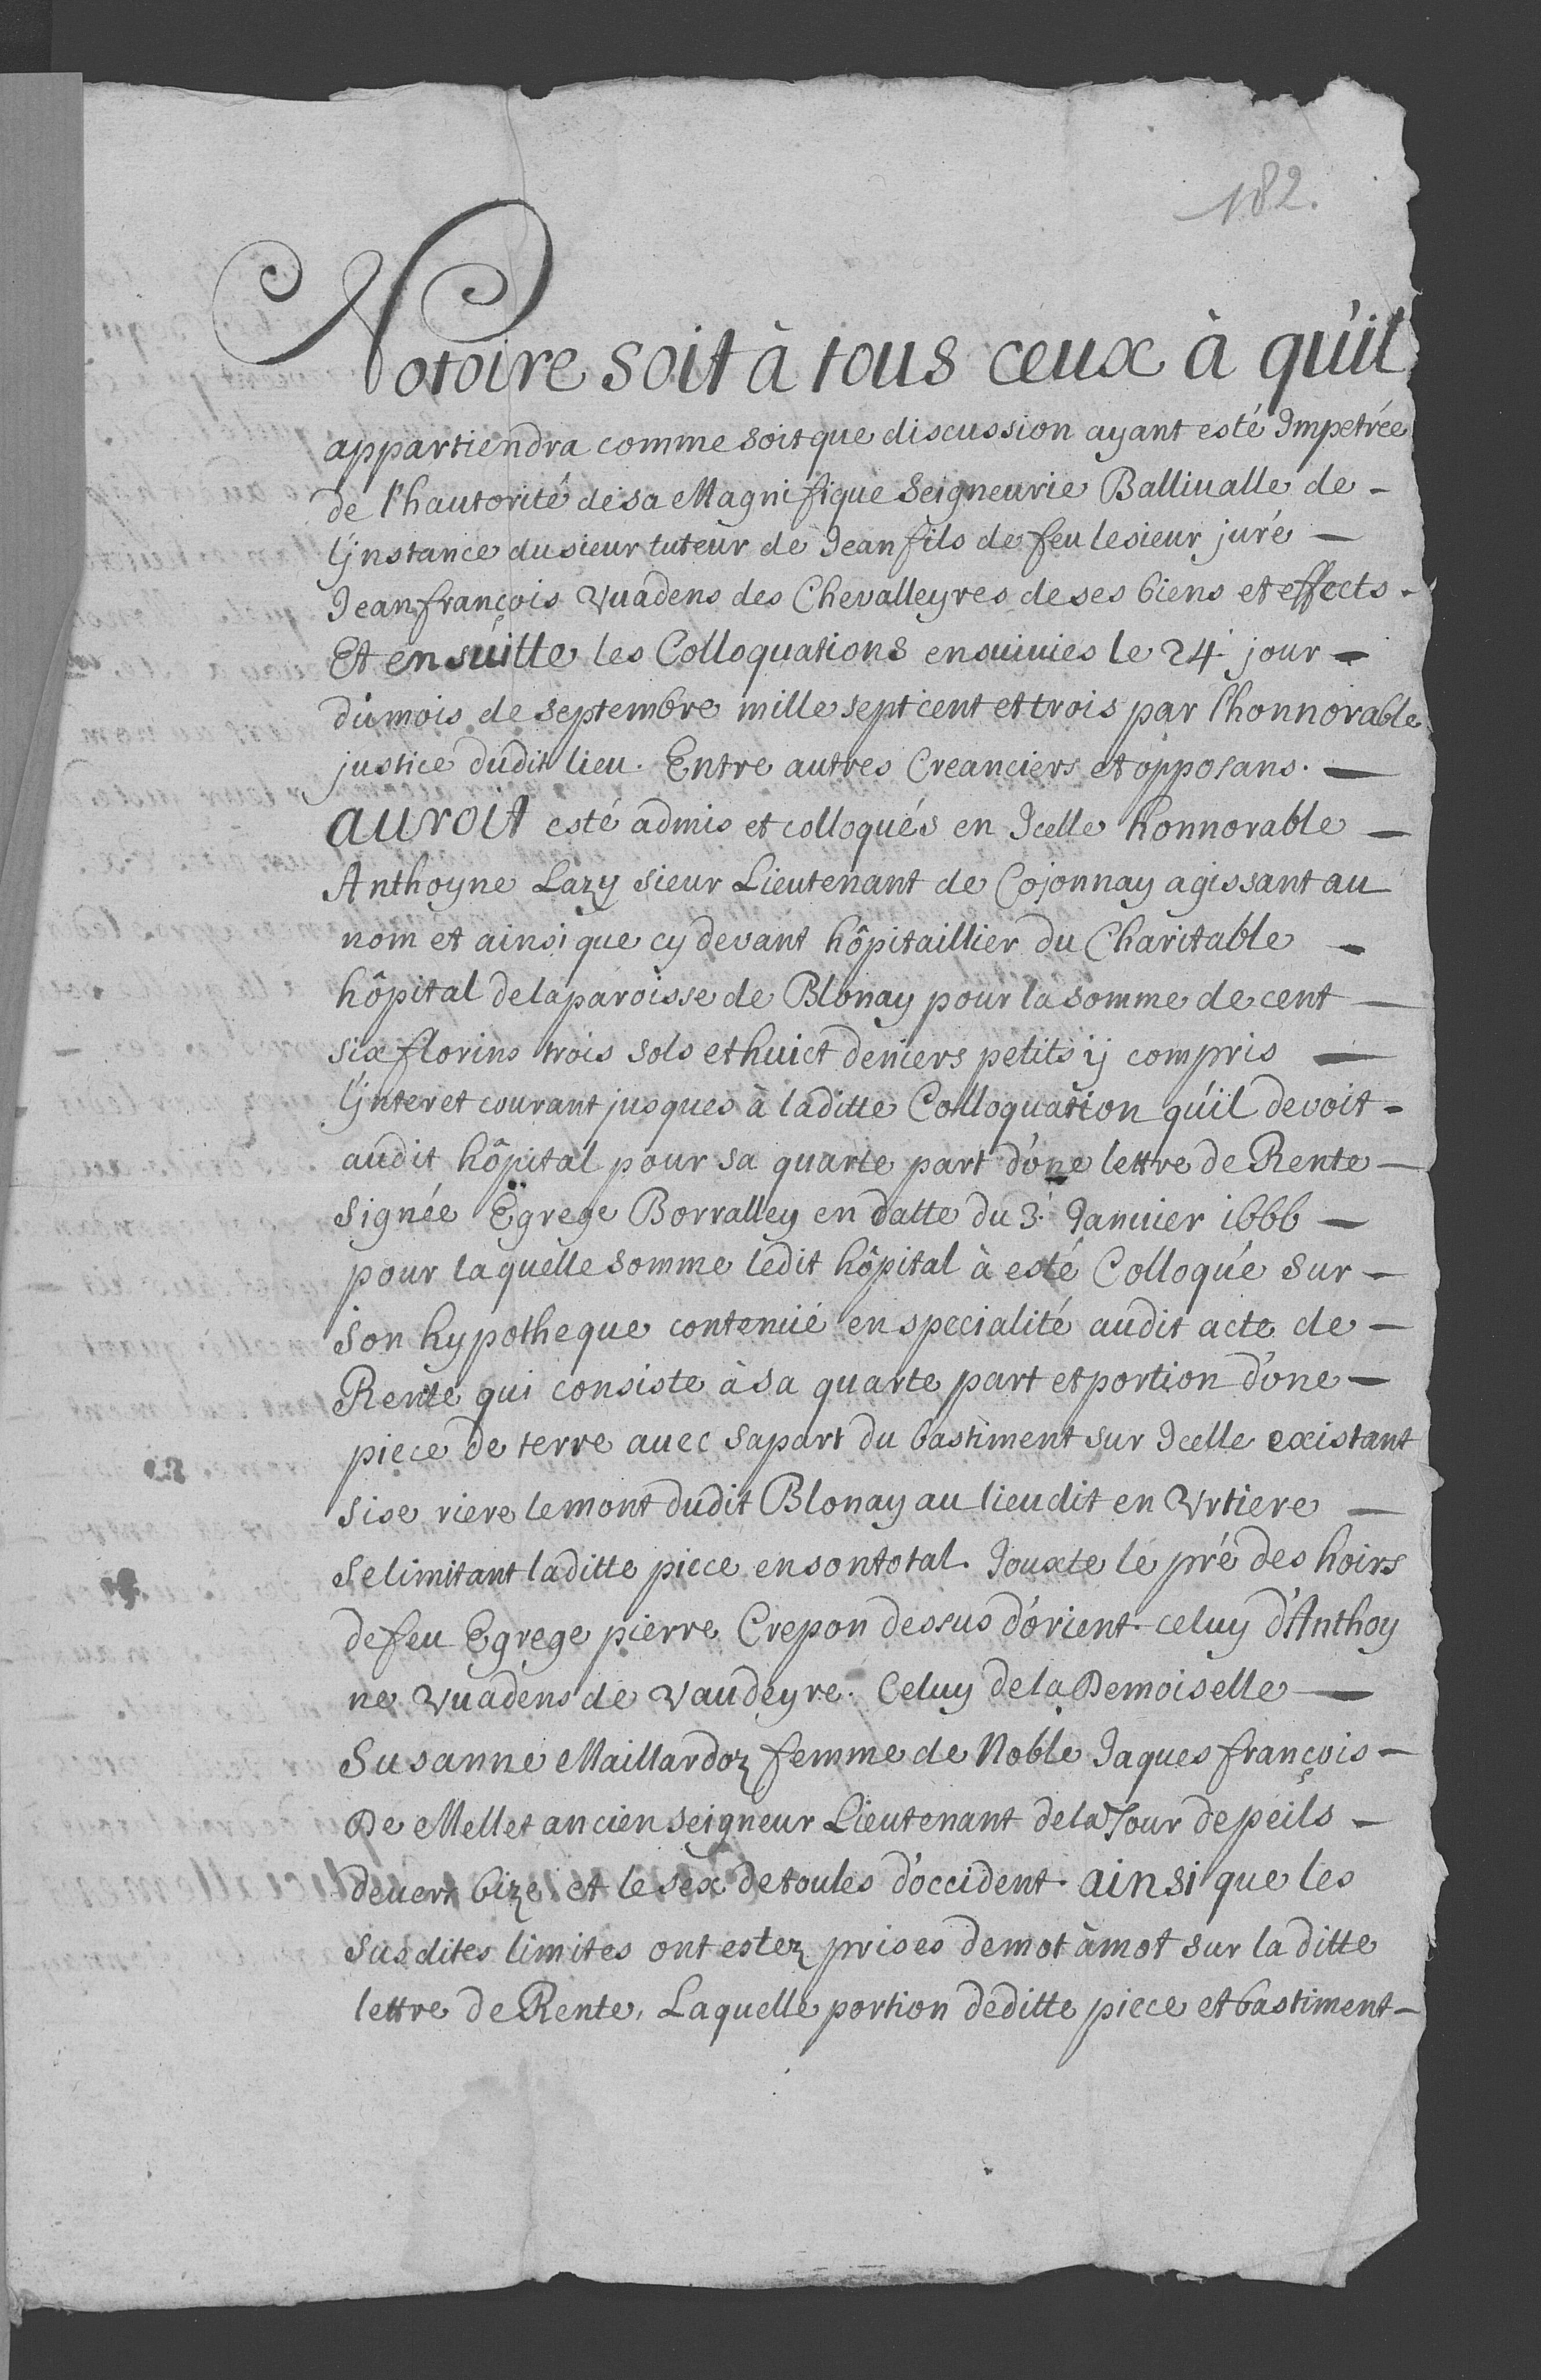 182.
Notoire soit à tous ceux à qu'il
appartiendra comme soit que discussion ayant esté Impetrée
de l'hautorité de sa Magnifique Seigneurie Balliualle de -
l'jnstance du sieur tuteur de Jean fils de feu le sieur juré -
Jean françois Vuadens des Chevalleyres de ses biens et effects.
Et en suitte les Colloquations ensuivies le 24 jour -
du mois de septembre mille sept cent et trois par l'honnorable
justice dudit lieu. Entre autres Creanciers et opposans. -
auroit esté admis et colloqués en Jcelle honnorable -
Anthoyne Lazy sieur Lieutenant de Cojonnay agissant au
nom et ainsi que cy devant hôpitaillier du Charitable -
hôpital de la paroisse de Blonay pour la somme de cent -
six florins trois sols et huict deniers petits ij compris -
l'jnteret courant jusques à laditte Colloquation qu'il devoit -
audit hôpital pour sa quarte part d'one lettre de Rente -
signée Egrege Borralley en datte du 3. Januier 1666 -
pour laquelle somme ledit hôpital à esté Colloqué sur -
son hypotheque contenüe en specialité audit acte de -
Rente qui consiste à sa quarte part et portion d'one -
piece de terre auec sa part du bastiment sur Jcelle existant
sise riere le mont dudit Blonay au lieu dit en Vrtiere -
se limitant laditte piece en son total. Jouxte le pré des hoirs
de feu Egrege pierre Crepon dessus d'orient. celuy d'Anthoy
ne Vuadens de Vaudeyre. Celuy de la Demoiselle -
Susanne Maillardoz femme de Noble Jaques françois -
De Mellet ancien seigneur Lieutenant de la Tour de peils -
deuert bize et le sex de toules d'occident. ainsi que les
susdites limites ont estez prises de mot à mot sur la ditte
lettre de Rente, Laquelle portion de ditte piece et bastiment -